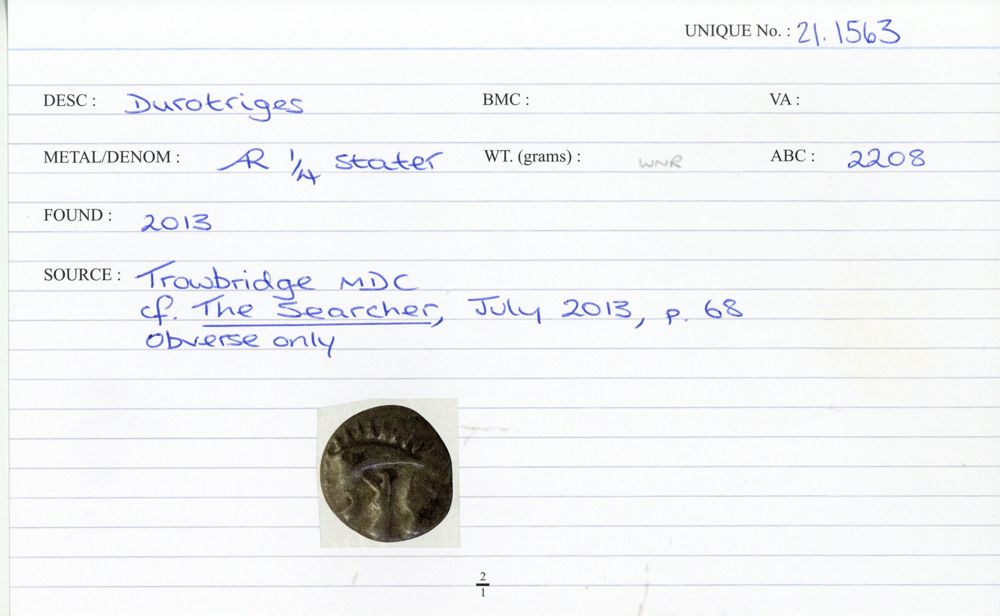 UNIQUE No. : 21.1563
DESC : Durotriges BMC : VA :
METAL/DENOM : AR 1/4 stater WT. (grams) : WNR ABC : 2208
FOUND : 2013
SOURCE : Trowbridge MDC
cf. The Searcher, July 2013, p. 68
obverse only
2
1